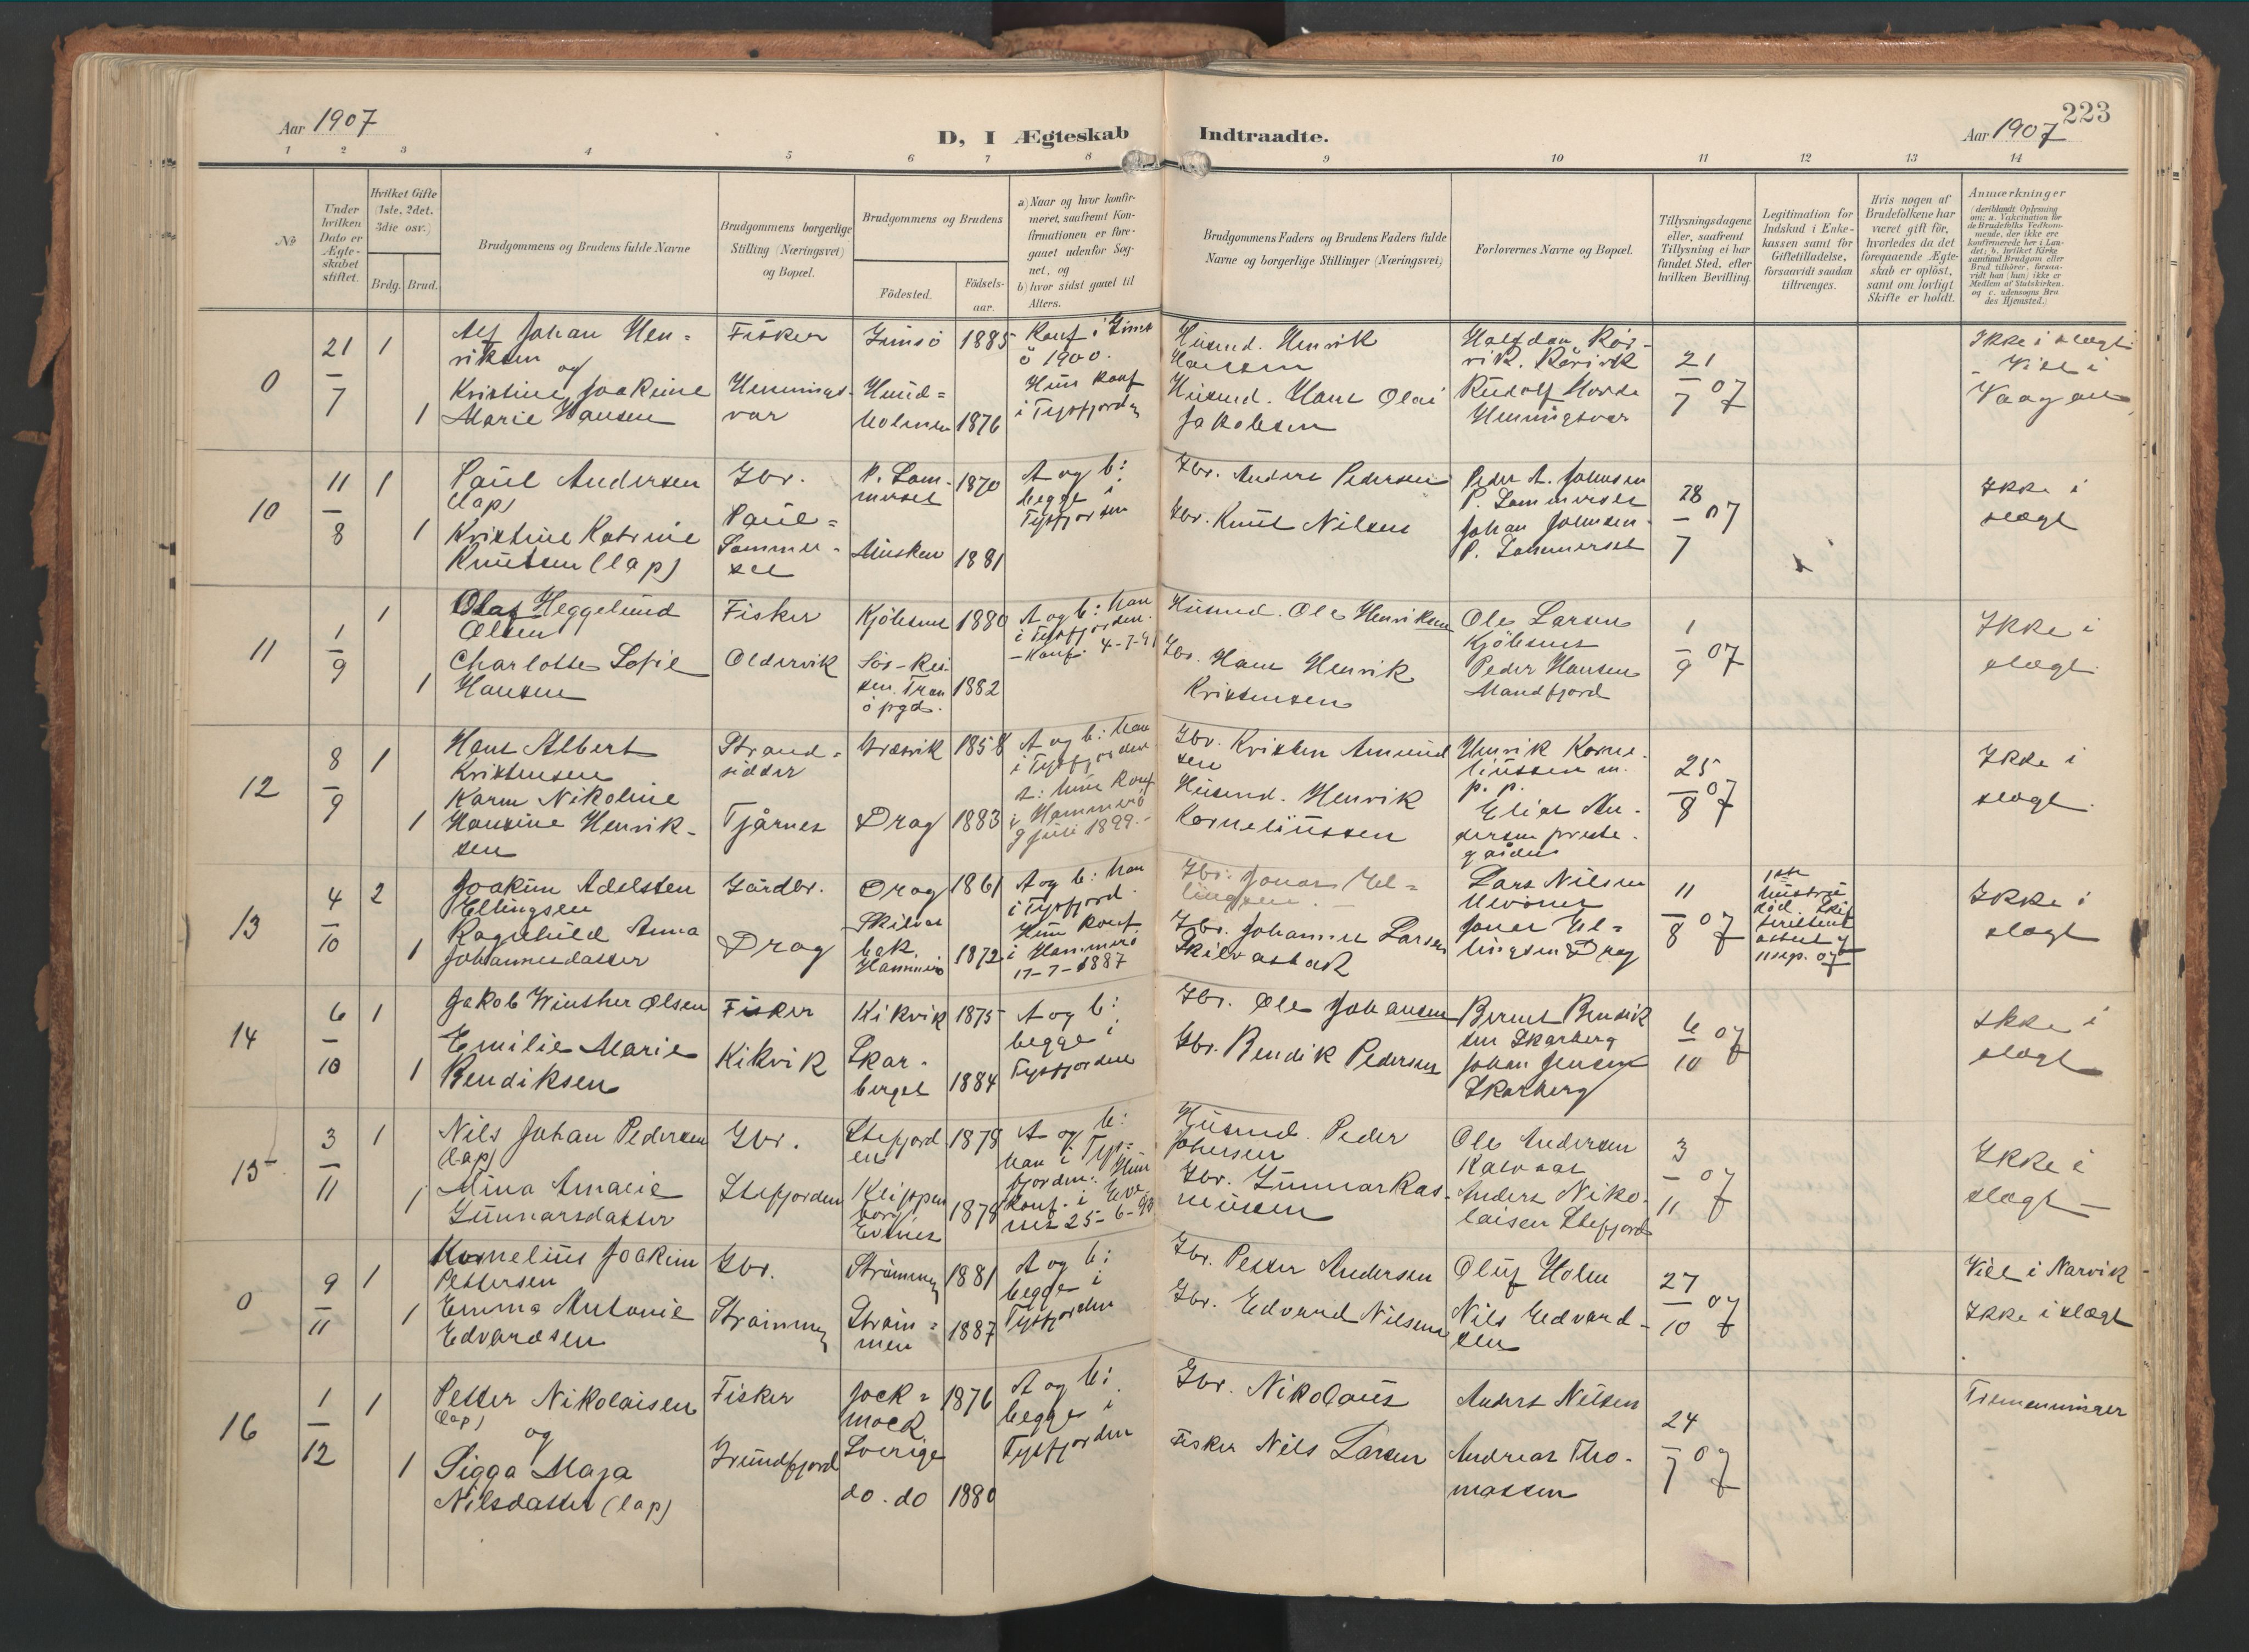 Aar 1907
D, I Ægteskab
Indtraadte.
223
Aar 1907
1 2 3 4 5 6 7 8 9 10 11 12 13 14
№
Under hvilken Dato er Ægteskabet stiftet.
Hvilket Gifte (1ste, 2det, 3die osv.)
Brdg. Brud.
Brudgommens og Brudens fulde Navne
Brudgommens borgerlige Stilling (Næringsvei) og Bopæl.
Brudgommens og Brudens
Födested.
Födselsaar.
a) Naar og hvor konfirmeret, saafremt Konfirmationen er foregaaet udenfor Sognet, og
b) hvor sidst gaaet til Alters.
Brudgommens Faders og Brudens Faders fulde Navne og borgerlige Stillinger (Næringsvei)
Forlovernes Navne og Bopæl.
Tillysningsdagene eller, saafremt Tillysning ei har fundet Sted, efter hvilken Bevilling.
Legitimation for Indskud i Enkekassen samt for Giftetilladelse, forsaavidt saadan tiltrænges.
Hvis nogen af Brudefolkene har været gift før, hvorledes da det foregaaende Ægteskab er oplöst, samt om lovligt Skifte er holdt.
Anmærkninger
(deriblandt Oplysning om: a. Vakcination for de Brudefolks Vedkommende, der ikke ere konfirmerede her i Landet; b. hvilket Kirkesamfund Brudgom eller Brud tilhörer, forsaavidt han (hun) ikke er Medlem af Statskirken, og c. udensogns Brudes Hjemsted.)
0
21/7
1
Alf Johan Hen-
riksen
og
Kristine Joakime
1 Marie Hansen
Fisker
Hennings-
vær
Gimsö 1885
Hund=
holmen 1876
Konf i Gims
ö 1900.
Hun konf
i Tysfjorden
Husmd. Henrik
Hansen
Husmd. Hans Olai
Jakobsen
Halfdan Rör-
vik. Rörvik
Rudolf
Henningsvær
21/7 07
Ikke i slægt.
Viet i
Vaagan
10
11/8
1
Paul Andersen
(lap)
1 Kristine Katrine
Knutsen (lap)
Gbr.
Paul=
Sommer-
set
P. Som-
merset 1870
Musken 1881
A og b:
begge i
Tysfjorden
Gbr. Anders Pedersen
Gbr. Knut Nilsen
Peder A. Johnsen
P. Sommerset
Johan Johnsen
P. Sommerset
28/7 07
Ikke i
slægt
11
1/9
1
Olaf Heggelund
Olsen
Charlotte Sofie
1 Hansen
Fisker
Oldervik
Kjöbsnes 1880
Sör-Rei
sen. Tran
ö pgd. 1882
A og b: han
i Tysfjorden.
- Konf. 4-7-
Husmd. Ole Henriksen
Gbr. Hans Henrik
Kristensen
Ole Larsen
Kjöbsnes
Peder Hansen
Mandfjord
1/9 07
Ikke i
slægt.
12
8/9
1
Hans Albert
Kristensen
Karen Nikoline
1 Hansine Henrik-
sen
Strand=
sidder
Tjårnes
Græsvik 1858
Drag 1883
A og b: han
i Tysfjorden
hun konf
i Hammerö
9 juli 1899.-
Gbr. Kristen Amund
sen
Husmd. Henrik
Korneliussen
Henrik Korne-
liussen m.
p. p.
Elias An-
dersen preste-
gården
25/8 07
Ikke i
slægt.
13
4/10
2
Joakim Adelsten
Ellingsen
Ragnhild Anna
1 Johannesdatter
Gårdbr.
Drag
Drag 1861
Skilvas
bak.
Hammerö 1872
A og b: han
i Tysfjord.
Hun konf.
i Hammerö
17-7-1887
Gbr. Jonas El=
lingsen.
Gbr. Johannes Larsen
Skilvasbak
Lars Nilsen
Jonas El=
lingsen Drag
11/8 07
1ste
hustru
död. Skif
teattest
11 sep. 07
Ikke i
slægt
14
6/10
1
Jakob Winther Olsen
Emilie Marie
1 Bendiksen
Fisker
Kikvik
Kikvik 1875
Skar-
berget 1884
A og b:
begge i
Tysfjorden
Gbr. Ole Johansen
Gbr. Bendik Pedersen
Bernt Bendik
sen Skarberg
Johan Jensen
Skarberg
6/10 07
Ikke i
slægt
15
3/11
1
Nils Johan Pedersen
(lap)
1 Mina Amalie
Gunnarsdatter
Gbr.
Stefjorden
Stefjord
en 1878
Klippen
borg
Evenes 1878
A og b:
han i Tys=
fjorden. Hun
konf. i Eve
nes 25-6-93
Husmd. Peder
Johnsen
Gbr. Gunnar Ras-
mussen
Ole Andersen
Kalvaas
Anders Niko-
laisen Stefjord
3/11 07
Ikke i
slægt -
0
9/11
1
Kornelius Joakim
Pettersen
1 Emma Antonie
Edvardsen
Gbr.
Strömmen
Strömmen 1881
Ström=
men 1887
A og b:
begge i
Tysfjorden
Gbr. Petter Andersen
Gbr. Edvard Nilsen
Oluf Holm
Nils Edvard-
sen
27/10 07
Viet i Narvik
Ikke i slægt
16
1/12
1
Petter Nikolaisen
(lap)
og
1 Sigga Maja
Nilsdatter (lap)
Fisker
Grundfjord
Jock=
mock
Sverige 1876
do. do 1880
A og b:
begge i
Tysfjorden
Gbr. Nikolaus
Fisker Nils Larsen
Anders Nilsen
Andreas Tho-
massen
24/7 07
Tremenninger